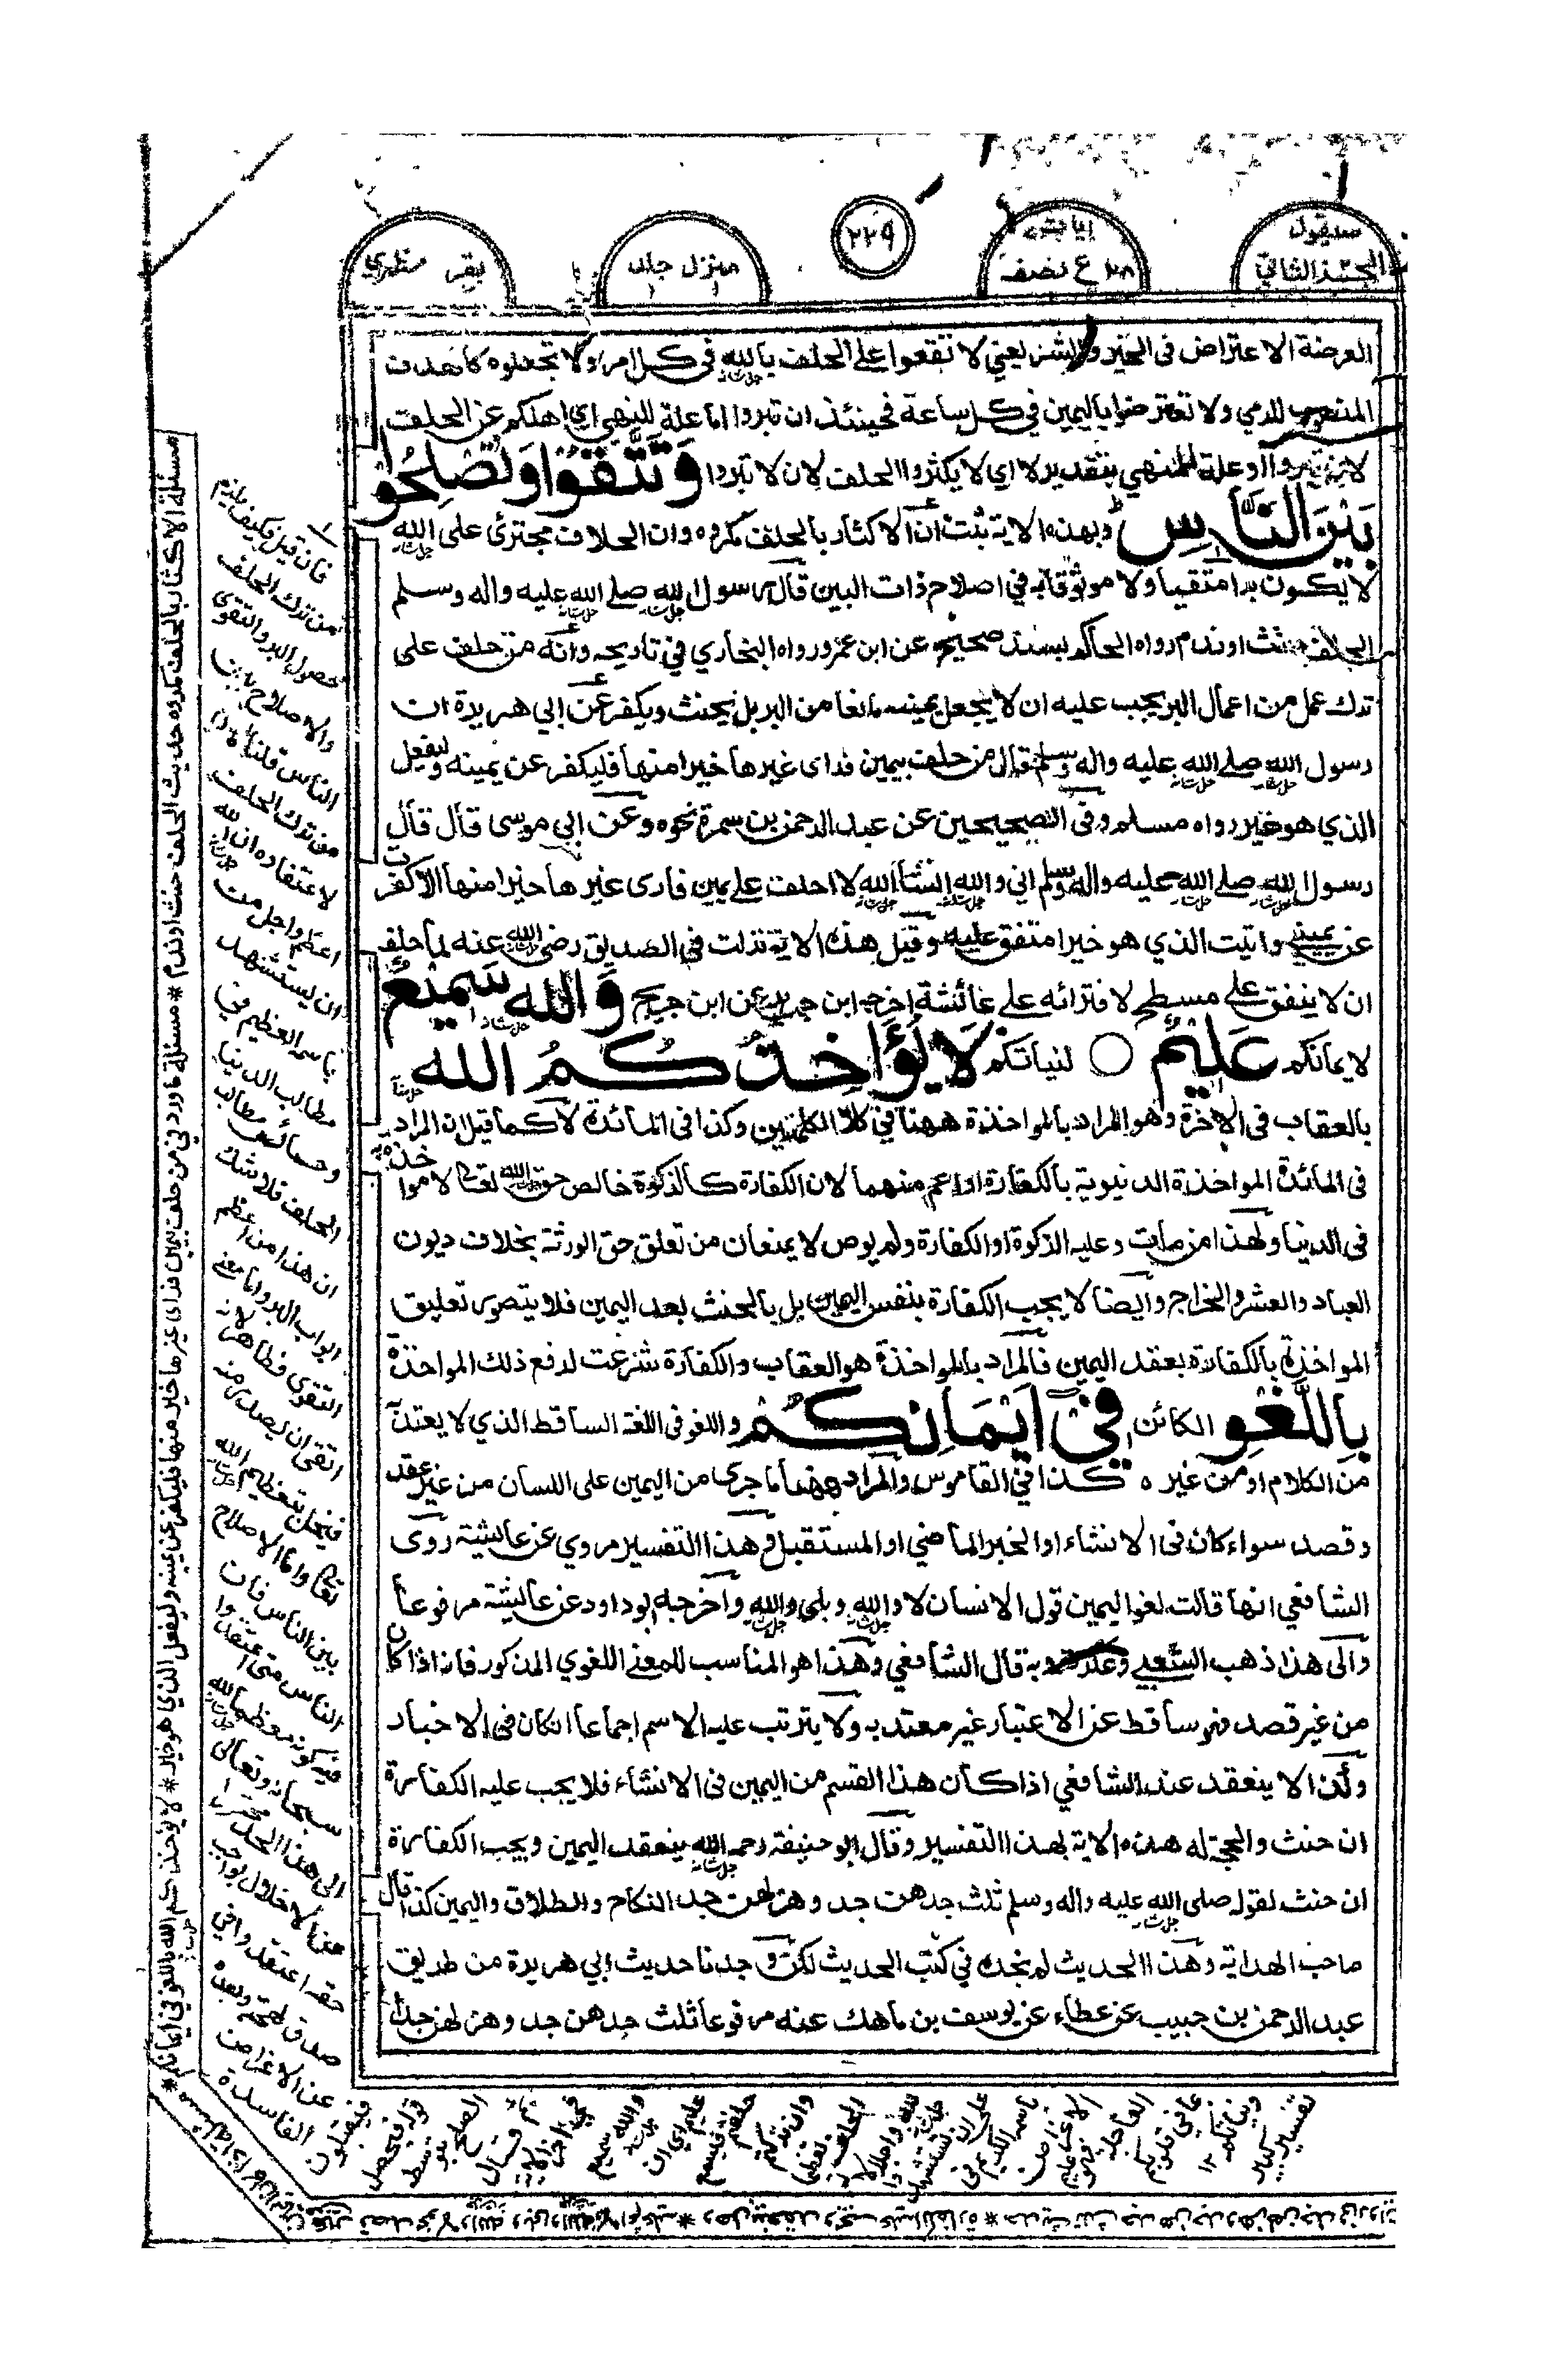 سيقول
الجزء الثاني
٢٨ ع نصف
٢٢٩
منزل
بقر مظهري
العرضة الاعتراض فى الخير والشر يعني لا تقعوا على الحلف بالله في كل امر ولا تجعلوه كالهدف
المنصوب للرمي ولا تعترضوا باليمين في كل ساعة فحينئذ ان تبروا اما علة للنهي اي انهاكم عن الحلف
او علة للمنهي بتقدير لا اي لا يكثروا الحلف لان لا تبروا وَتَتَّقُوْا وَتُصْلِحُوْا
بَيْنَ النَّاسِ وبهذه الاية يثبت ان الاكثار بالحلف مكروه وان الحلاف مجترئ على الله
لا يكون برا متقيا ولا موثوقا به في اصلاح ذات البين قال رسول الله صلى الله عليه واله وسلم
الحلف حنث او ندم رواه الحاكم بسند صحيح عن ابن عمر ورواه البخاري في تاريخه وانه من حلف على
ترك عمل من اعمال البر يجب عليه ان لا يجعل يمينه مانعا من البر بل يحنث ويكفر عن ابي هريرة ان
رسول الله صلى الله عليه واله وسلم قال من حلف بيمين فراى غيرها خيرا منها فليكفر عن يمينه وليفعل
الذي هو خير رواه مسلم وفى الصحيحين عن عبد الرحمن بن سمرة نحوه وعن ابي موسى قال قال
رسول الله صلى الله عليه واله وسلم اني والله انشاء الله لا احلف على يمين فارى غيرها خيرا منها الا كفرت
عن يميني واتيت الذي هو خير متفق عليه وقيل هذه الاية نزلت في الصديق رضى الله عنه لما حلف
ان لا ينفق على مسطح لافترائه على عائشة اخرجه ابن جرير عن ابن جريج وَاللهُ سَمِيْعٌ
لايمانكم عَلِيْمٌ ○ لنياتكم لَا يُؤَاخِذُكُمُ اللهُ
بالعقاب فى الاخرة وهو المراد بالمواخذة ههنا في كلا الكلمتين وكذا فى المائدة لا كما قيل ان المراد
فى المائدة المواخذة الدنيوية بالكفارة او اعم منهما لان الكفارة كالزكوة خالص حق الله تعالى لا مواخذة به
فى الدنيا ولهذا من مات وعليه الزكوة او الكفارة ولم يوص لا يمنعان من تعلق حق الورثة بخلاف ديون
العباد والعشر والخراج وايضا لا يجب الكفارة بنفس اليمين بل بالحنث بعد اليمين فلا يتصور تعليق
المواخذة بالكفارة بعقد اليمين فالمراد بالمواخذة هو العقاب والكفارة شرعت لدفع ذلك المواخذة
بِاللَّغْوِ الكائن فِيْ اَيْمَانِكُمْ واللغو فى اللغة الساقط الذي لا يعتد به
من الكلام او من غيره كذا في القاموس والمراد ههنا ما جرى من اليمين على اللسان من غير عقد
وقصد سواء كان فى الانشاء او الخبر الماضي او المستقبل وهذا التفسير مروي عن عايشة روى
الشافعي انها قالت لغو اليمين قول الانسان لا والله وبلى والله واخرجه ابو داود عن عايشة مرفوعا
والى هذا ذهب الشعبي وعكرمة وبه قال الشافعي وهذا هو المناسب للمعنے اللغوي المذكور فانه اذا كان
من غير قصد فهو ساقط عن الاعتبار غير معتد به ولا يترتب عليه الاسم اجماعا ان كان فى الاخبار
ولذا لا ينعقد عند الشافعي اذا كان هذا القسم من اليمين فى الانشاء فلا يجب عليه الكفارة
ان حنث والحجة له هذه الاية بهذا التفسير وقال ابو حنيفة رحمه الله ينعقد اليمين ويجب الكفارة
ان حنث لقوله صلى الله عليه واله وسلم ثلث جدهن جد وهزلهن جد النكاح والطلاق واليمين كذا قال
صاحب الهداية وهذا الحديث لم نجده في كتب الحديث لكن وجدنا حديث ابي هريرة من طريق
عبد الرحمن بن حبيب عن عطاء عن يوسف بن ماهك عنه مرفوعا ثلث جدهن جد وهزلهن جد
فان قيل فكيف يلزم
من ترك الحلف
حصول البر والتقوى
والاصلاح بين
الناس قلنا لان
من ترك الحلف
لاعتقاده ان الله
اعظم واجل من
ان يستشهد
باسمه العظيم في
مطالب الدنيا
وخسائس مطالب
الحلف فلا شك
ان هذا من اعظم
ابواب البر واما معنے
التقوى فظاهر لانه
اتقى ان يصدر منه
فيخل بتعظيم الله
تعالى واما الاصلاح
بين الناس فان
الناس متى اعتقدوا
فيه كونه معظما لله
سبحانه وتعالى
الى هذا الحد محترزا
عن الاخلال بواجب
حقه اعتقدوا في
صدق لهجته وبعده
عن الاغراض
الفاسدة
فيقبلون
قوله فيحصل
الصلح بتوسطه
مسئلة الاكثار بالحلف مكروه حديث الحلف حنث او ندم * مسئلة ما ورد في من حلف بيمين فراى غيرها خير منها فليكفر عن يمينه وليفعل الذي هو خير * لا يؤاخذكم الله باللغو في ايمانكم *